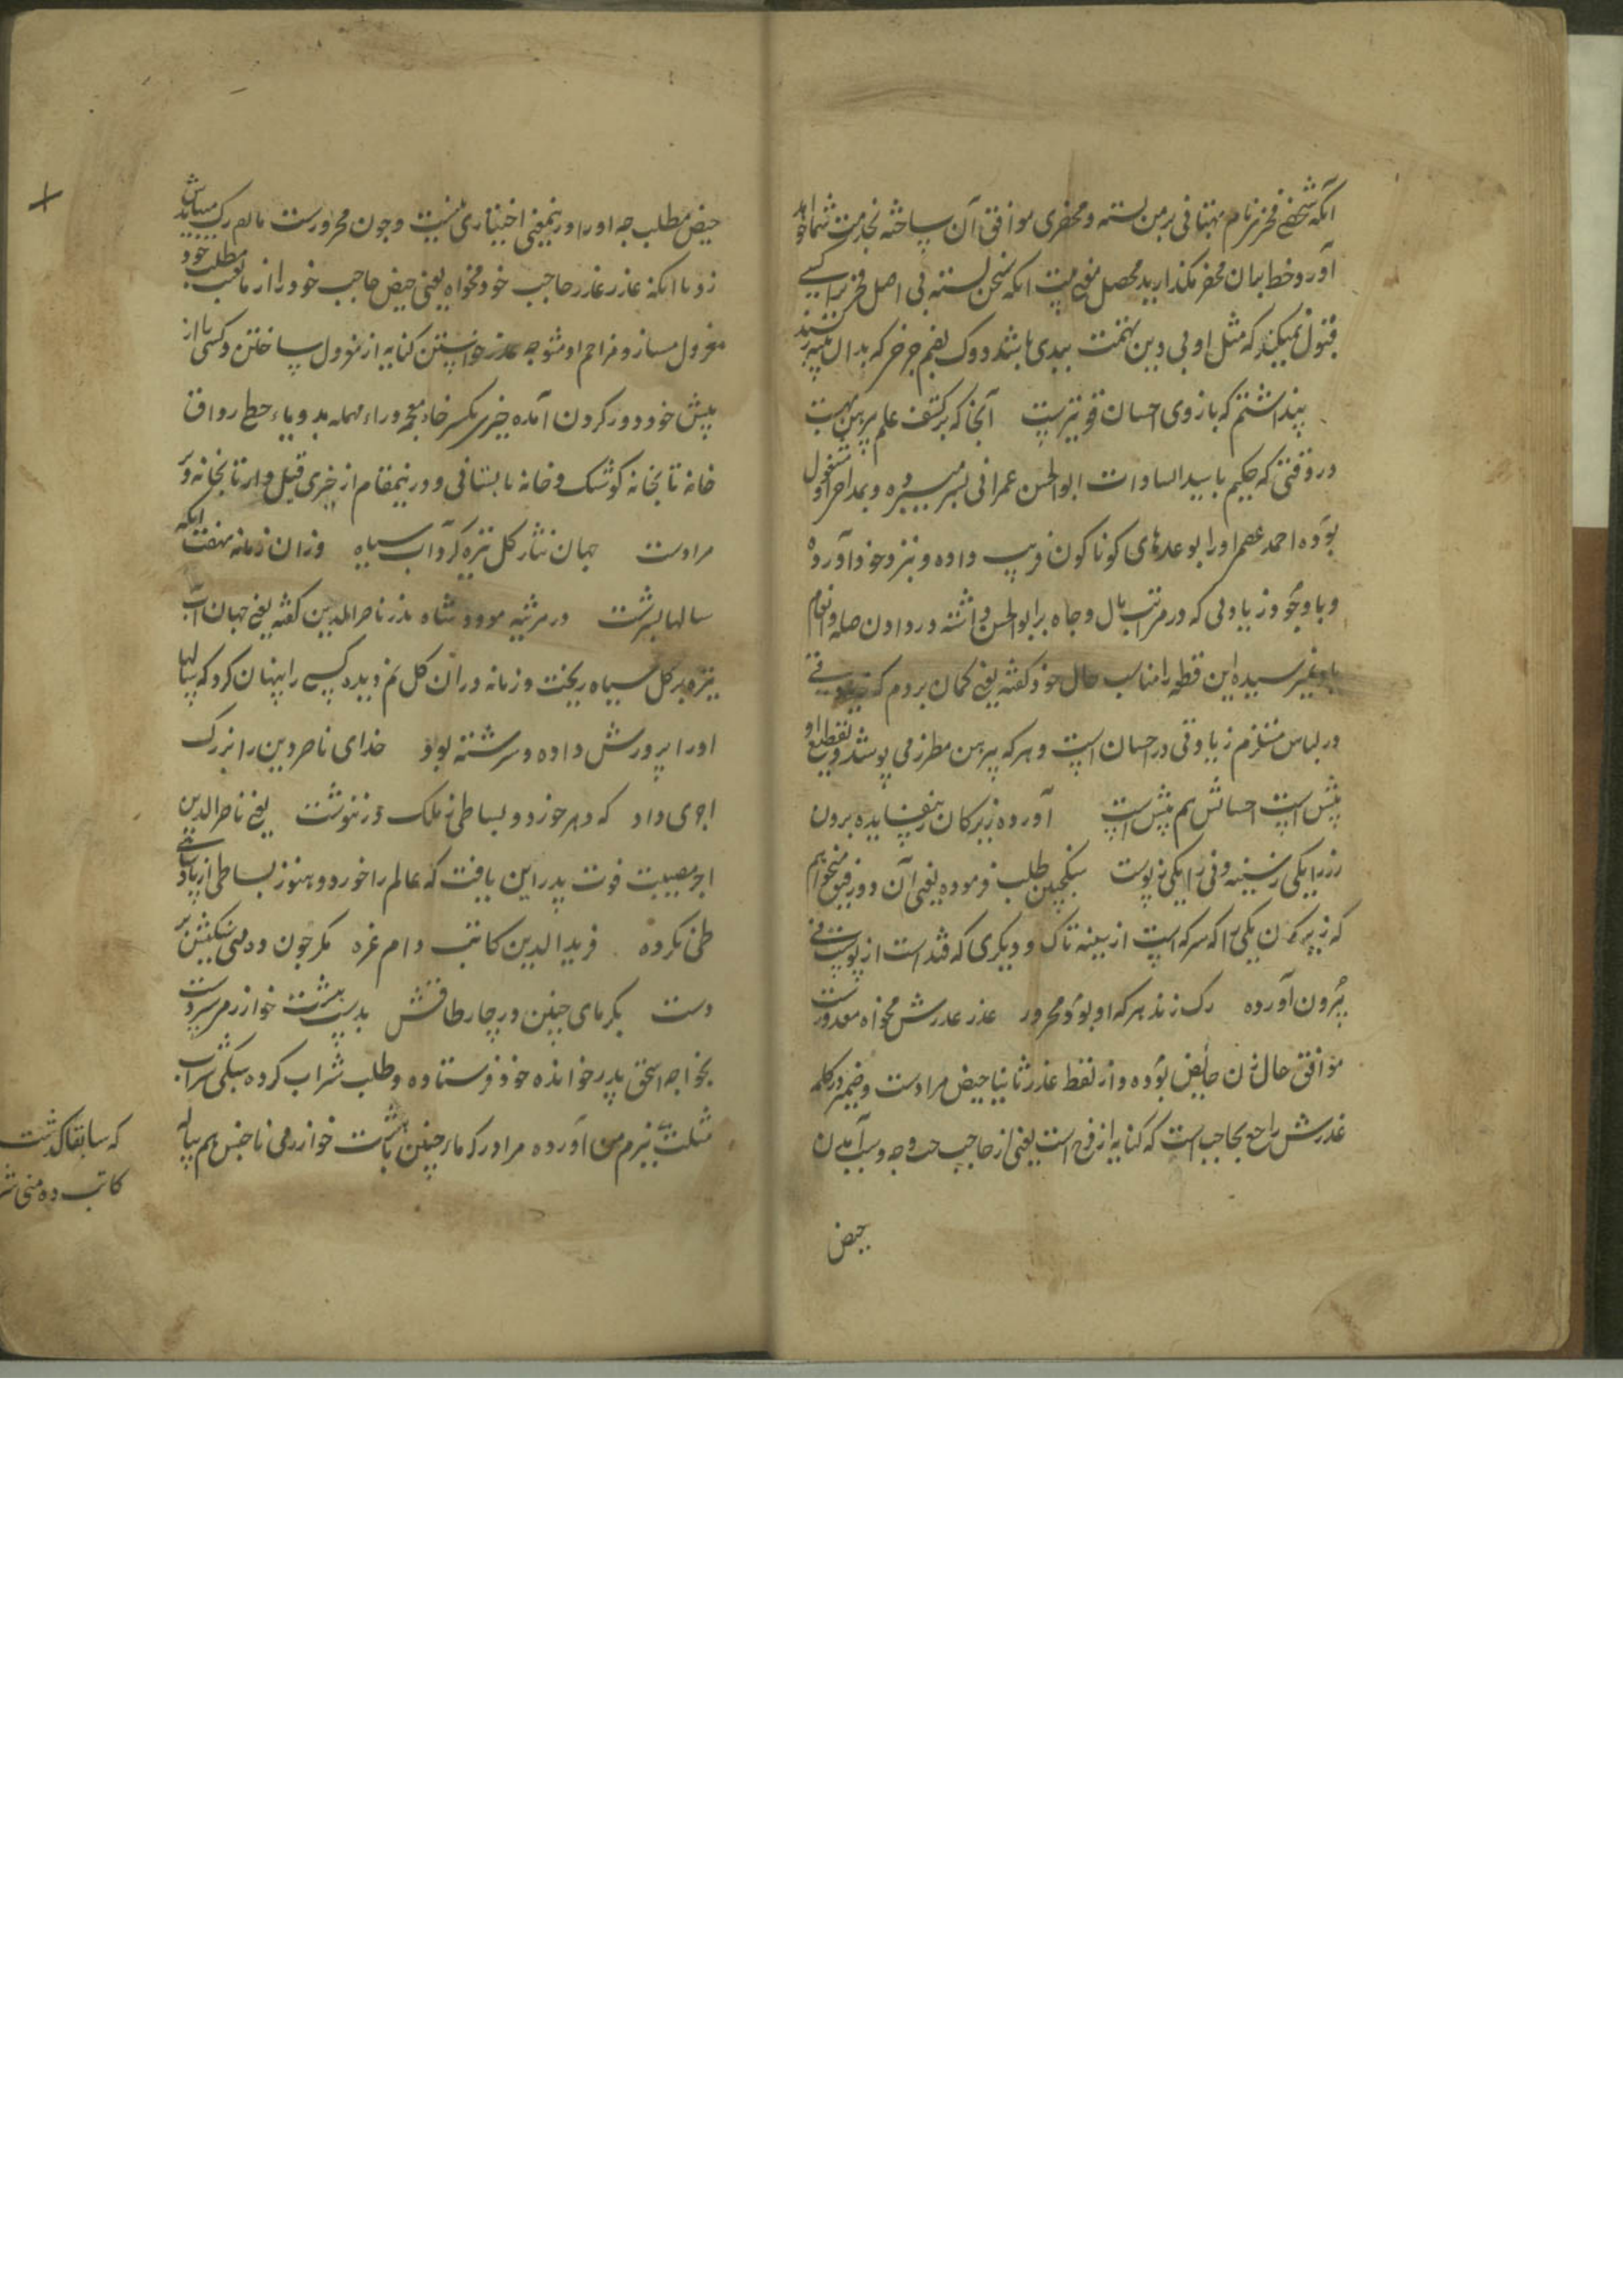 آنکه شخصی فخر نام بهتانی بر من بسته و محضری موافق آن ساخته بخدمت شما خواهد
آورد خط بدان محضر مگذارید محصل معنی بیت آنکه سخن بسته بی اصل فخر را کسی
قبول نمیکند که مثل او بی دین تهمت بندی باشد و دوک بضم چرخی که بدان پنبه رسند
پنداشتم که بازوی احسان قوی‌ترست آنجا که بر کتف علم پیرهن بهست
در وقتی که حکیم با سید السادات ابوالحسن عمرانی بسر میبرده و بمداحی او مشغول
بوده احمد عصم او را بوعدهای کوناکون فریب داده و نزد خود آورده
و با وجود زیادتی که در مرتبه مال و جاه بر ابوالحسن داشته در دادن صله و انعام
باو نمیرسیده این قطعه را مناسب حال خود گفته یعنی گمان بردم که زیادتی
در لباس مستلزم زیادتی در احسان است و هر که پیرهن مطرز می پوشد و تقطیع او
بیش است احسانش هم بیش است آورده زیرکان ز پی فایده برون
رز را یکی ز سینه و نی را یکی ز پوست سکنجبین طلب فرموده یعنی آن دو رفیق میخواهم
که زیرکان یکی را که سرکه است از سینه تاک و دیگری که قند است از پوست نی
بیرون آورده رک زند هر که او بود محرور عذر عذرش مخواه معذورست
موافق حال زن حایض بوده و از لفظ عذر ثانیا حیض مرادست و ضمیر در کلمه
عذرش راجع بحاجب است که کنایه از فرج است یعنی از حاجب حد وجه و سبب آمدن
حیض
حیض مطلب چه او را در اینمعنی اختیاری نیست و چون محرورست ما هم رک میباید
زد با آنکه عذر عذر حاجب خود مخواه یعنی حیض حاجب خود را از ما مطلب خود
معزول مساز و مزاحم او مشو چه عذر خواستن کنایه از معزول ساختن و کسی را از
پیش خود دور کردن آمده خیری بکسر خاء معجمه و راء مهمله مد و یاء حطی رواق
خانه تابخانه کوشک و خانه تابستانی و در اینمقام از خیری قبل و از تابخانه دبر
مرادست جهان نثار گل تیره کرد آب سیاه وزان زمانه نهفت آنکه
سالها بسرشت در مرثیه مودود شاه پدر ناصرالدین گفته یعنی جهان آب
تیره بر گل سیاه ریخت و زمانه در آن گل نم دیده کسی را پنهان کرد که سالها
او را پرورش داده و سرشته بود خدای ناصر دین را بزرگ
اجری داد که دهر خورد و بساطی ز ملک در ننوشت یعنی ناصرالدین
اجر مصیبت فوت پدر این یافت که عالم را خورد و هنوز بساطی از پادشاهی
طی نکرده فریدالدین کاتب دام عزه مگر چون ده منی سنگیش بر
دست بگرمای چنین در چار طاقش بدست بیست خوارزمی سردست
بخواجه اسحق پدر خوانده خود فرستاده و طلب شراب کرده سیکی شراب
مثلث ببزم من آورده مرا در گرمای چنین با بیست خوارزمی ناجنس هم پیاله
که سابقا گذشت
کاتب ده منی